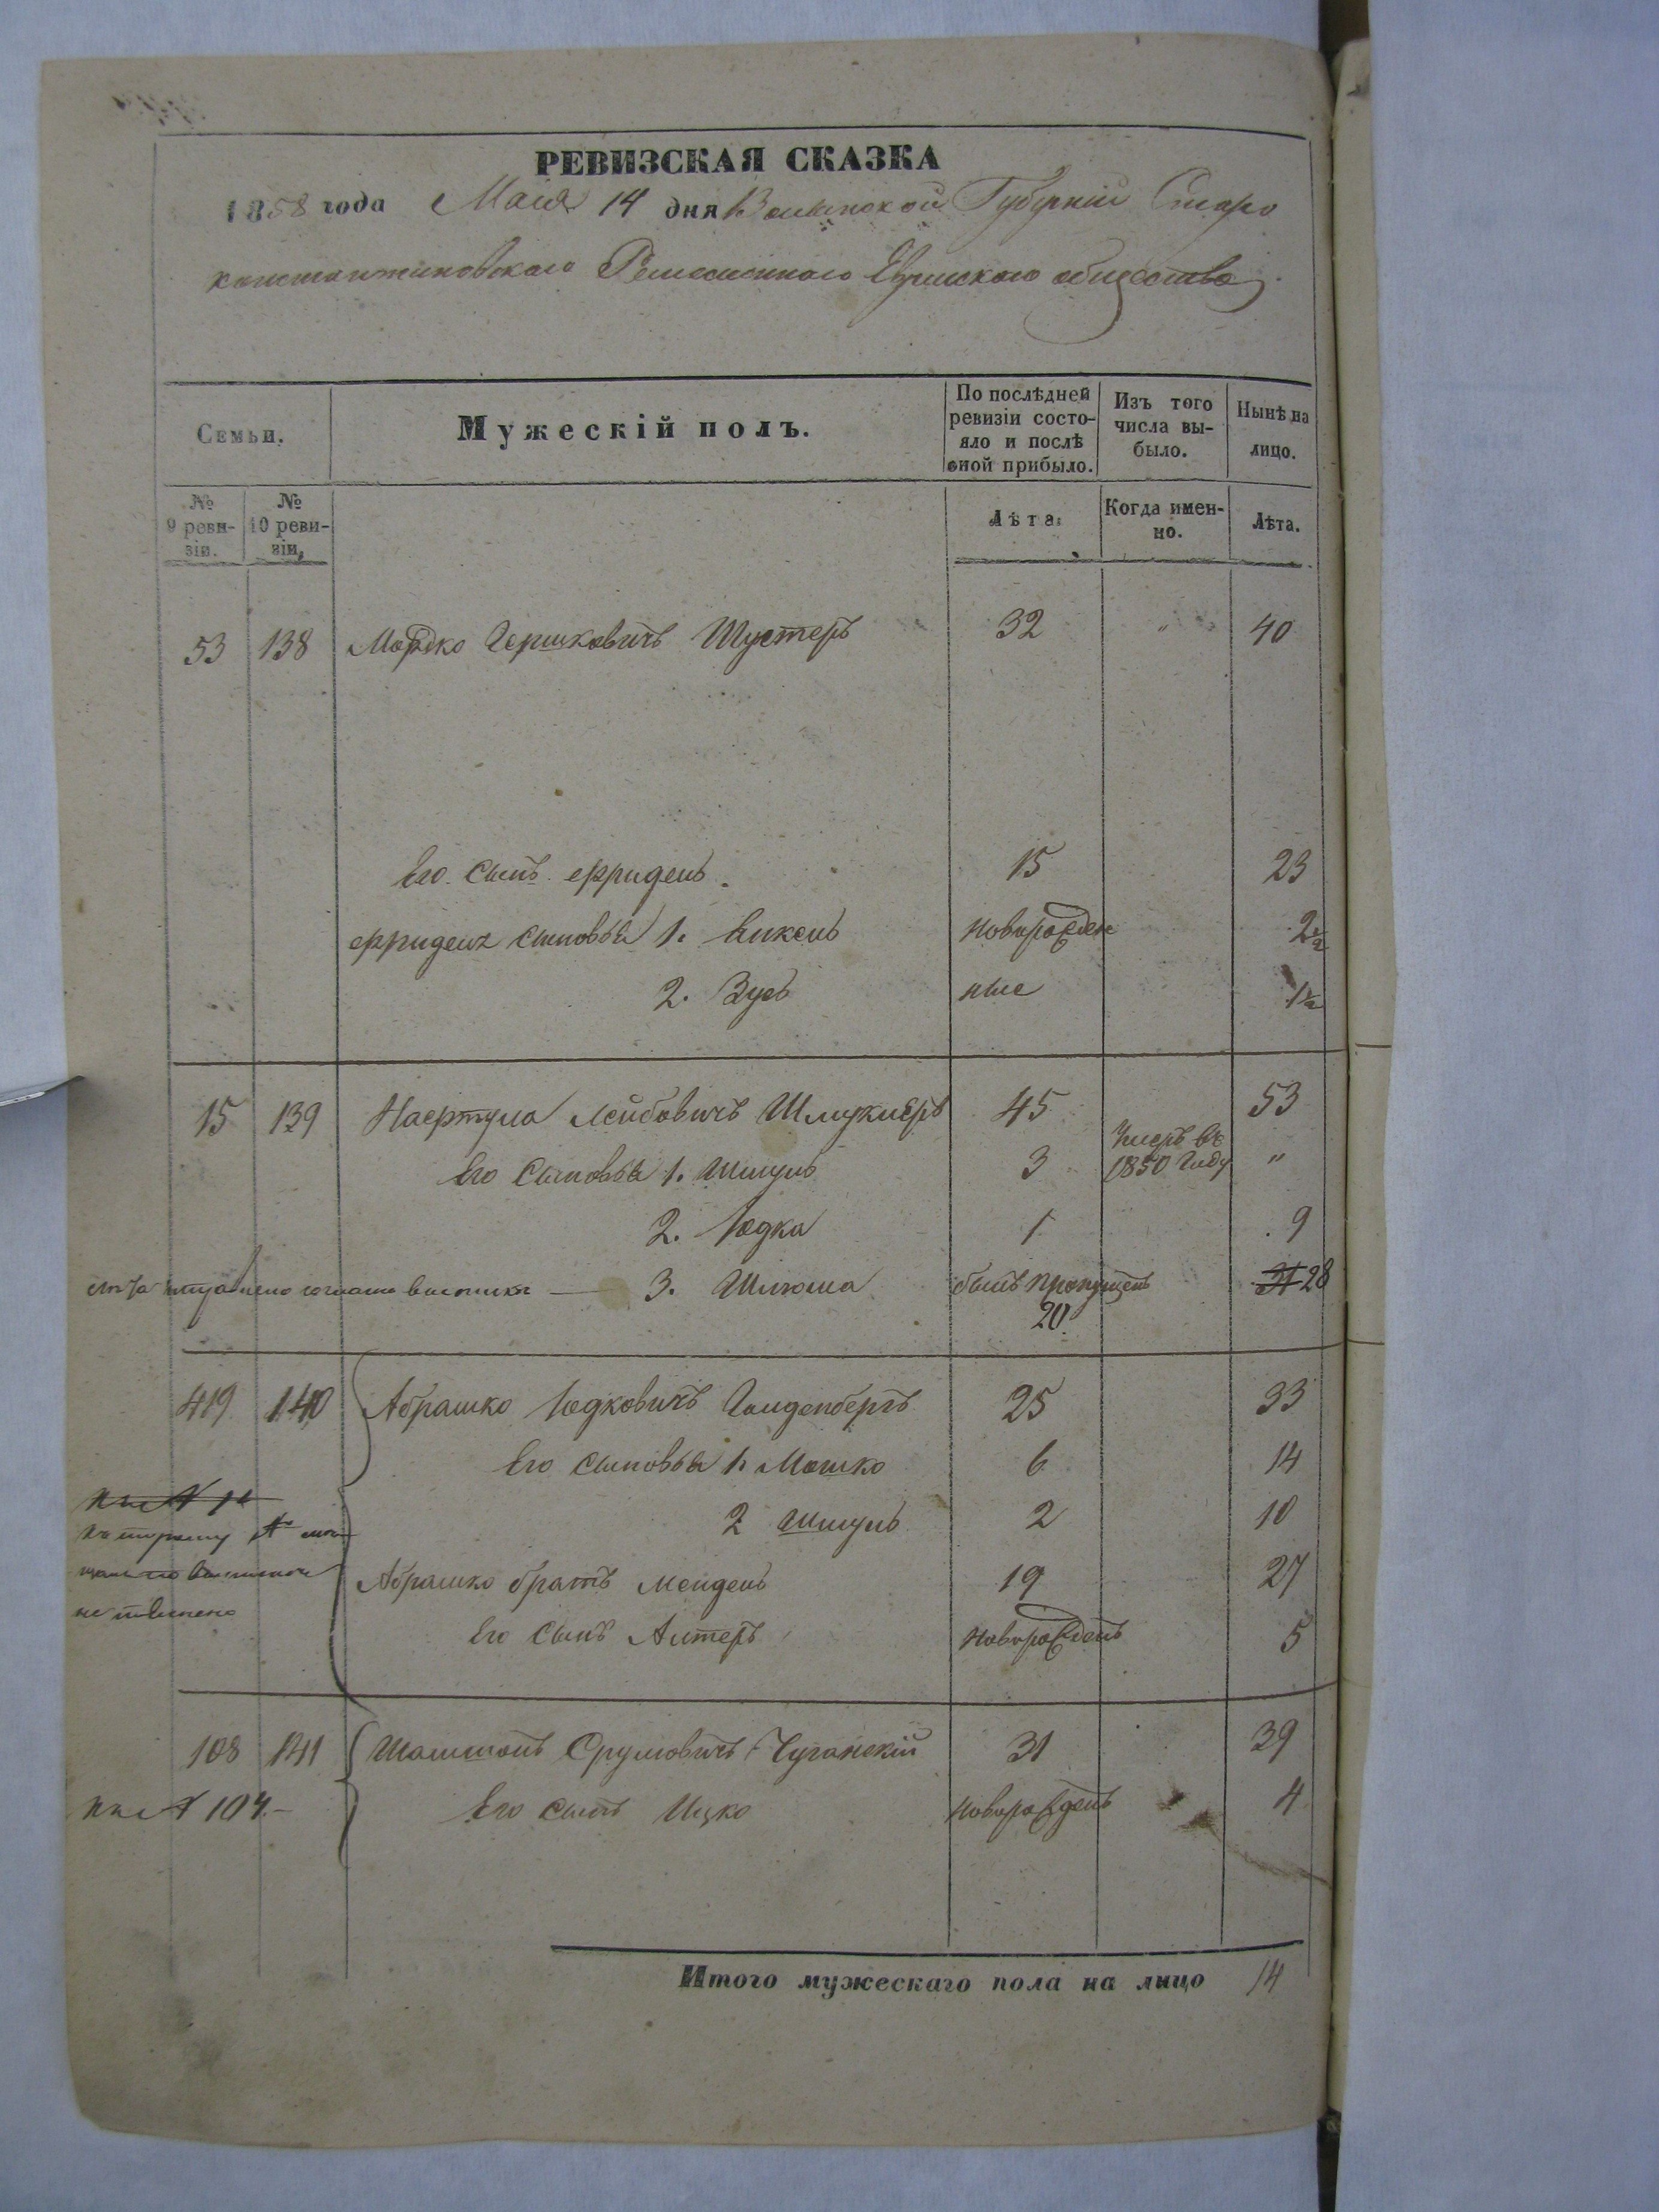 РЕВИЗСКАЯ СКАЗКА
1858 года Мая 14 дня Волынской Губерніи Старо
константиновскаго Ремесленнаго Еврейскаго общества
Семьи.
Мужескій полъ.
По послѣдней ревизіи состо-
яло и послѣ
оной прибыло.
Изъ того
числа вы-
было.
Нынѣ на
лицо.
№
9 реви-
зіи.
№
10 реви-
зіи.
Лѣта.
Когда имен-
но.
Лѣта.
53 138 Мордко Гершковичъ Шустеръ 32 " 40
Его сынъ Фридель 15 23
Фриделя сыновья 1. новорожден 2½
2. Зусь ные 1½
15 139 Нафтула Лейбовичъ Шмуклеръ 45 53
Его сыновья 1. Шмуль 3 Умеръ въ 1850 году "
2. Юдка 1 9
3. Шлёма былъ пропущенъ 28
20
419 140 Абрашко Юдковичъ Гольденбергъ 25 33
Его сыновья 1. Мошко 6 14
2 Шмуль 2 10
Абрашко братъ Мендель 19 27
Его сынъ Алтеръ новорожденъ 5
108 141 Шамшонъ Срулевичъ 31 39
104.
Его сынъ Ицко новорожденъ 4
Итого мужескаго пола на лицо 14